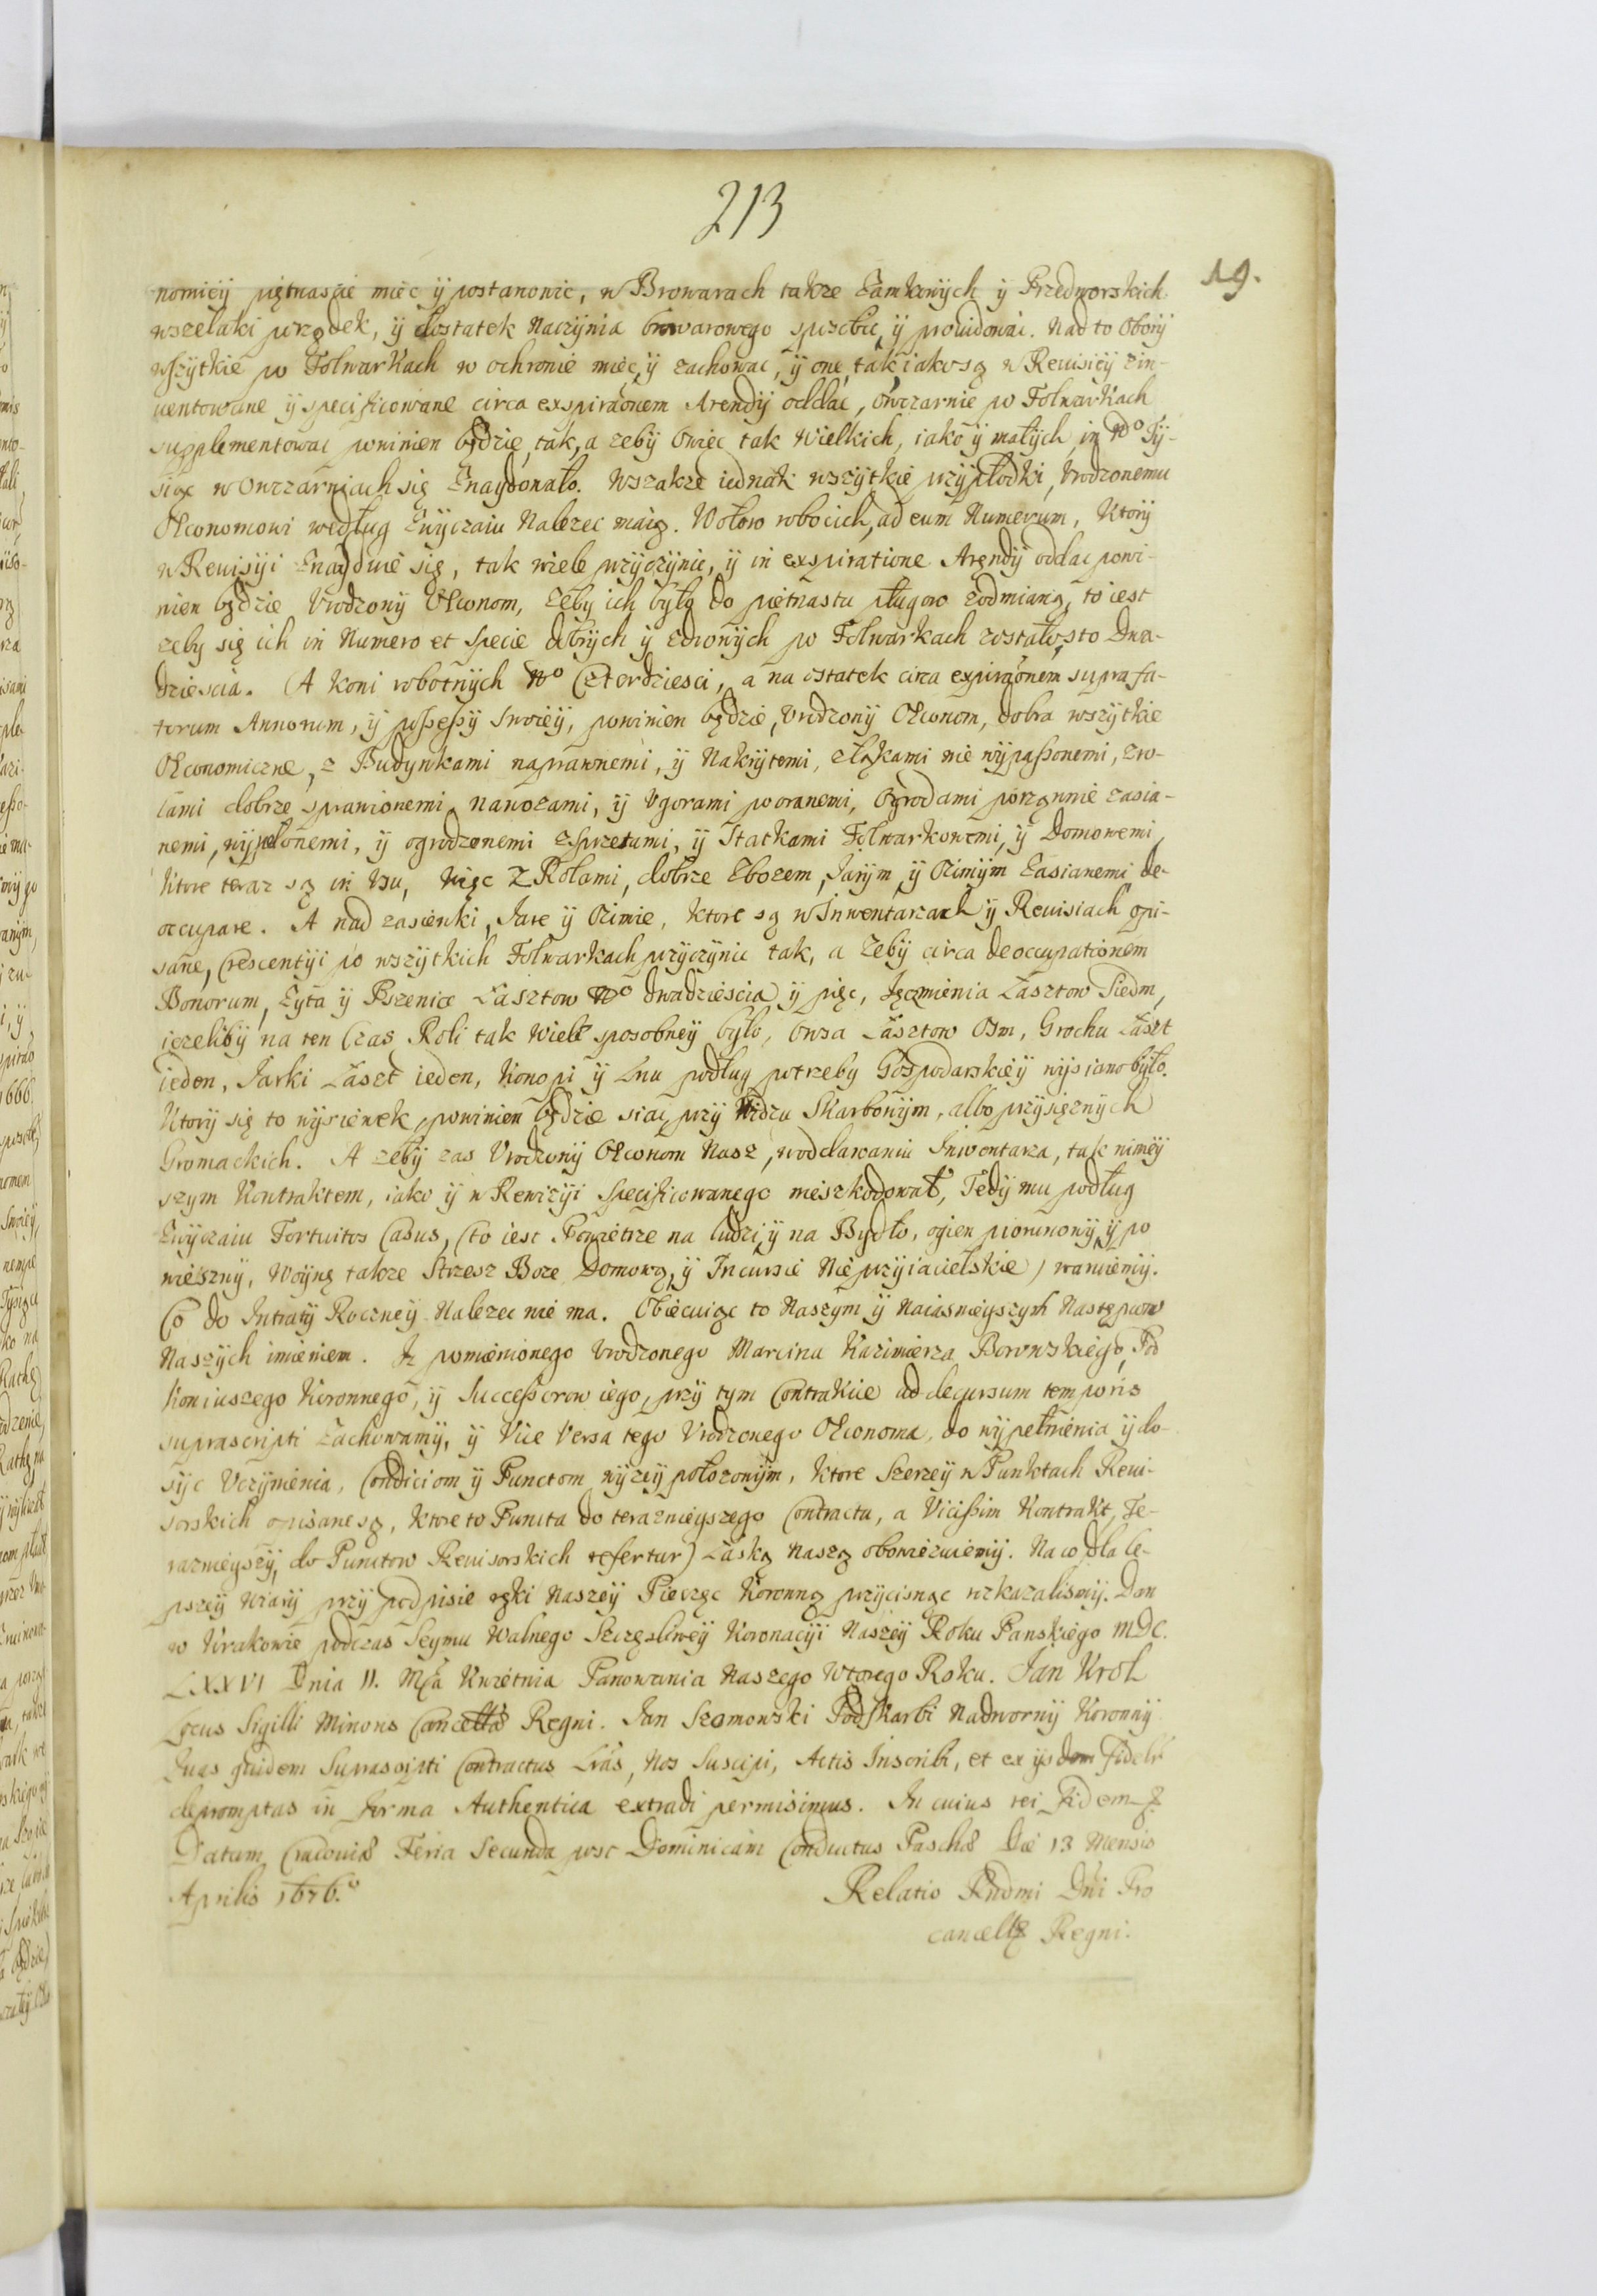 213
19.
nomiey piętnascie miec y postanowic, w Browarach takze Zamkowych y Przedworskich
wszelaki porządek, y dostatek Naczynia browarowego sprzetu, y prouidowac. Nad to Obory
wszytkie po Folwarkach w ochronie miec, y zachowac, y one, tak iako są w Reuisiey zin-
uentowane y specificowane circa exspiraonem Arendy oddac, owczarnie po Folwarkach
supplementowac powinien będzie, tak, a zeby owiec tak Wielkich, iako y małych, in No Ty-
siąc w Owczarniach się Znaydowało. Wszakze iednak wszytkie przypłodki, Vrodzonemu
Okonomowi według Zwyczaiu Nalezec maią. Wołow robocich, ad eum Numerum, Ktory
w Reuisyi Znaydzie się, tak wiele przyczynic, y in exspiratione Arendy oddac powi-
nien będzie Vrodzony Okonom, zeby ich było do piętnastu pługow zodmianą, to iest
zeby się ich in Numero et specie dobrych y zdrowych po Folwarkach zostało, sto Dwa-
dziescia. A Koni robotnych No Czterdziesci, a na ostatek circa expiraonem supra fa-
torum Annorum, y possessy Swoiey, powinien będzie, Vrodzony Okonom, dobra wszytkie
Okonomiczne, z Budynkami naprawnemi, y Nakrytemi, złąkami nie wypassonemi, zro-
lami dobrze sprawionemi nawozami, y Vgorami pooranemi, Ogrodami porządnie zasia-
nemi, wypelonemi, y ogrodzonemi zsprzetami, y Statkami Folwarkowemi, y Domowemi,
Ktore teraz są in Vsu, Więc Z Rolami, dobrze Zbozem, Jarym, y Ozimym Zasianemi de-
occupare. A nad zasiewki, Jare y Ozimie, ktore są w Inwentarzach y Reuisiach opi-
sane, Crescentyi po wszytkich Folwarkach przyczynic tak, a Zeby circa deoccupationem
Bonorum, Zyta y Pszenice Łasztow No dwadziescia y pięc, Jęczmienia Łasztow Siedm,
iezeliby na ten Czas Roli tak wiele sposobney było, Owsa Łasztow Osm, Grochu Łaszt
ieden, Jarki Łaszt ieden, Konopi y Lnu podług potrzeby Gospodarskiey wysiano było.
Ktory się to wysiewek, powinien będzie siac, przy Widzu Skarbowym, albo przysięznych
Gromackich. A zeby zas Vrodzony Okonom Nasz, woddawaniu Inwentarza, tak ninieÿ
szym Kontraktem, iako y w Rewizyi specificowanego nieszkodował, Tedy mu podług
Zwyczaiu Fortuitos Casus, (to iest Powietrze na ludzi, y na Bydło, ogien piorunowy, y po
wieszny, Woynę takze Strzesz Boze Domową, y Incursie Nieprzyiacielskie) waruiemy.
Co do Intraty Roczney Nalezec nie ma. Obiecuiąc to Naszym y Naiasnieyszych Następcow
Naszych imieniem. Iz pomienionego Vrodzonego Marcina Kazimierza Borowskiego, Pod
Koniuszego Koronnego, y Successorow iego, przy tym Contrakcie ad decursum temporis
suprascripti zachowamy, y Vice Versa tego Vrodzonego Okonoma, do wypełnienia y do-
syc Vczynienia, Condiciom y Punctom wyzey połozonym, ktore Szerzey w Punktach Reui-
sorskich opisane są, ktore to Puncta do teraznieyszego Contractu, a Vicissim Kontrakt, Te-
raznieyszy, do Punctow Reuisorskich refertur) Łaską Naszą obowiezuiemy. Na co dla le-
pszey Wiary przy podpisie ręki Naszey Pieczęc Koronną przycisnąc rozkazalismy. Dan
w Krakowie podczas Seymu Walnego Szczęsliwey Koronacyi Naszey Roku Panskiego MDC.
LXXVI Dnia 11. Mca Kwietnia Panowania Naszego Wtorego Roku. Jan Krol
Locus Sigilli Minoris Cancellæ Regni. Jan Szomowski Podskarbi Nadworny Koronny
Quas quidem Suprascripti Contractus Lras, Nos Suscipi, Actis Inscribi, et ex ijsdem Fideli
depromptas in Forma Authentica extradi permisimus. In cuius rei Fidem
Datum Cracoviæ Feria Secunda post Dominicam Conductus Paschæ Die 13 Mensis
Aprilis 1676.o
Relatio Rndmi Dni Pro
cancellę Regni.